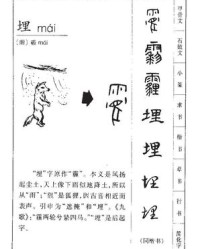 埋 mái
〔附〕霾 mái
"埋"字原作"霾"。本义是风扬
起尘土,天上像下雨似地降土,所以
从"雨";"狸"是狐狸,因古音相近而
表声。引申为"遮掩"和"埋"。《九
歌》:"霾两轮兮絷四马。""埋"是后起
字。
甲骨文
石鼓文
小篆
隶书
楷书
草书
行书
简化字
霾
埋
埋
埋
(同楷书)